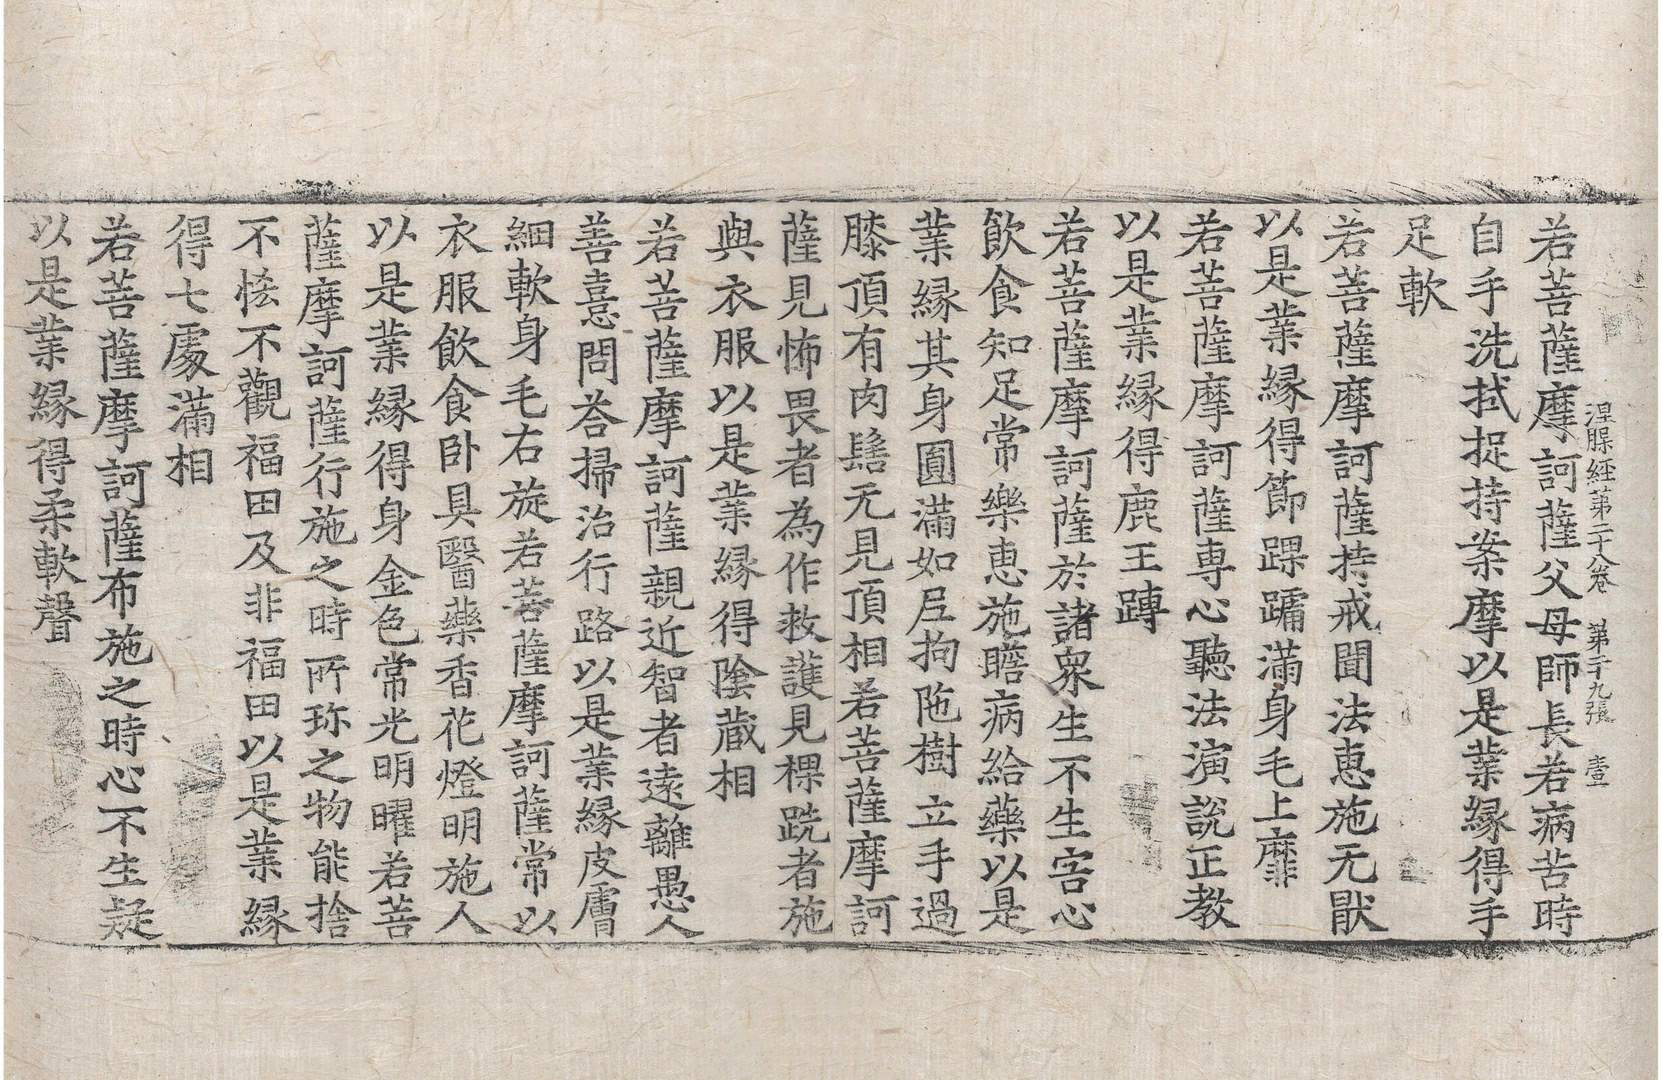 涅槃經第二十八卷 第二十九張 壹
若菩薩摩訶薩父母師長若病苦時
自手洗拭捉持案摩以是業緣得手
足軟
若菩薩摩訶薩持戒聞法惠施无猒
以是業緣得節踝𨄔滿身毛上靡
若菩薩摩訶薩專心聽法演說正教
以是業緣得鹿王蹲
若菩薩摩訶薩於諸衆生不生害心
飲食知足常樂惠施瞻病給藥以是
業緣其身圓滿如尼拘陁樹立手過
膝頂有肉髻无見頂相若菩薩摩訶
薩見怖畏者為作救護見裸跣者施
與衣服以是業緣得陰蔵相
若菩薩摩訶薩親近智者遠離愚人
善憙問荅掃治行路以是業緣皮膚
細軟身毛右旋若菩薩摩訶薩常以
衣服飲食卧具醫藥香花燈明施人
以是業緣得身金色常光明曜若菩
薩摩訶薩行施之時所珎之物能捨
不恡不觀福田及非福田以是業緣
得七處滿相
若菩薩摩訶薩布施之時心不生疑
以是業緣得柔軟聲